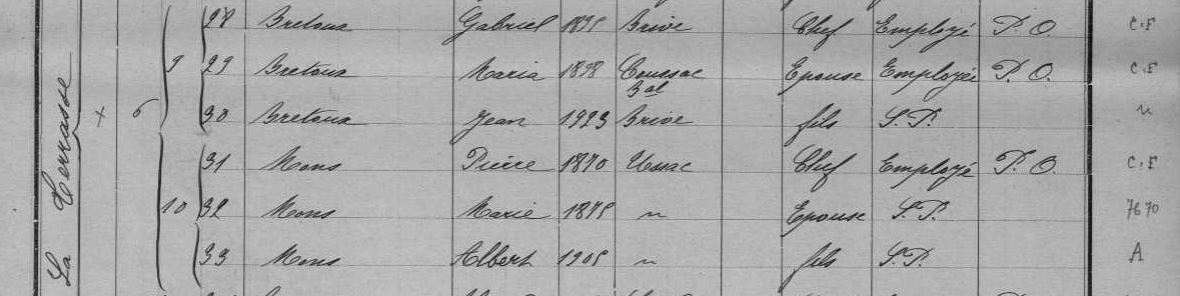 28 Bretoux Gabriel 1895 Brive Chef Employé P. O. C.F
9 29 Bretoux Maria 1898 Coussac Bal Epouse Employée P. O. C.F
La Terrasse x 6 30 Bretoux Jean 1923 Brive fils S.P. "
31 Mons Pierre 1870 Ussac Chef Employé P. O. C.F
10 32 Mons Marie 1875 " Epouse S.P. 7670
33 Mons Albert 1905 " fils S.P. A